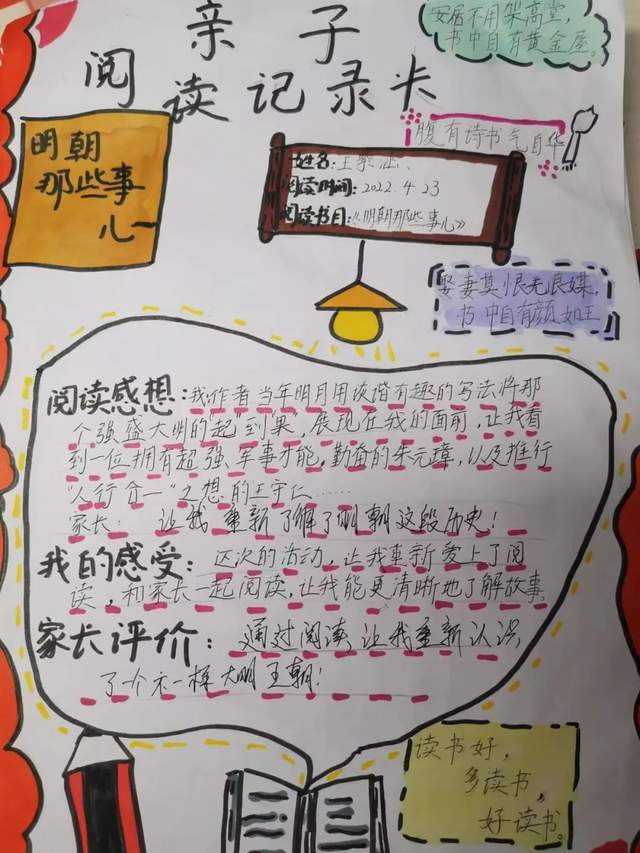 亲子
阅读记录卡
安居不用架高堂，
书中自有黄金屋。
明朝
那些事
儿一
腹有诗书气自华
姓名：王
阅读时间：2022.4.23
阅读书目：《明朝那些事儿》
娶妻莫恨无良媒，
书中自有颜如玉
阅读感想：我作者当年明月用诙谐有趣的写法将那
个强盛大明的起“到”果”，展现在我的面前，让我看
到一位拥有超强军事才能，勤奋的朱元璋，以及推行
“人行合一”之想的王守仁……
家长：让我重新了解了明朝这段历史！
我的感受：这次的活动，让我重新爱上了阅
读，和家长一起阅读，让我能更清晰地了解故事
家长评价：通过阅读让我重新认识
了一个不一样大明王朝！
读书好，
多读书，
好读书。